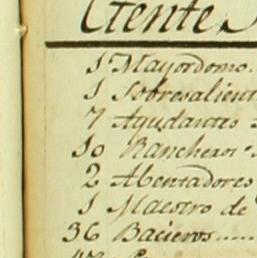 Gente
1 Mayordomo.
1 Sobresalient
7 Ayudantes
10 Rancheros
2 Abentadores
1 Maestro de
36 Bacieros